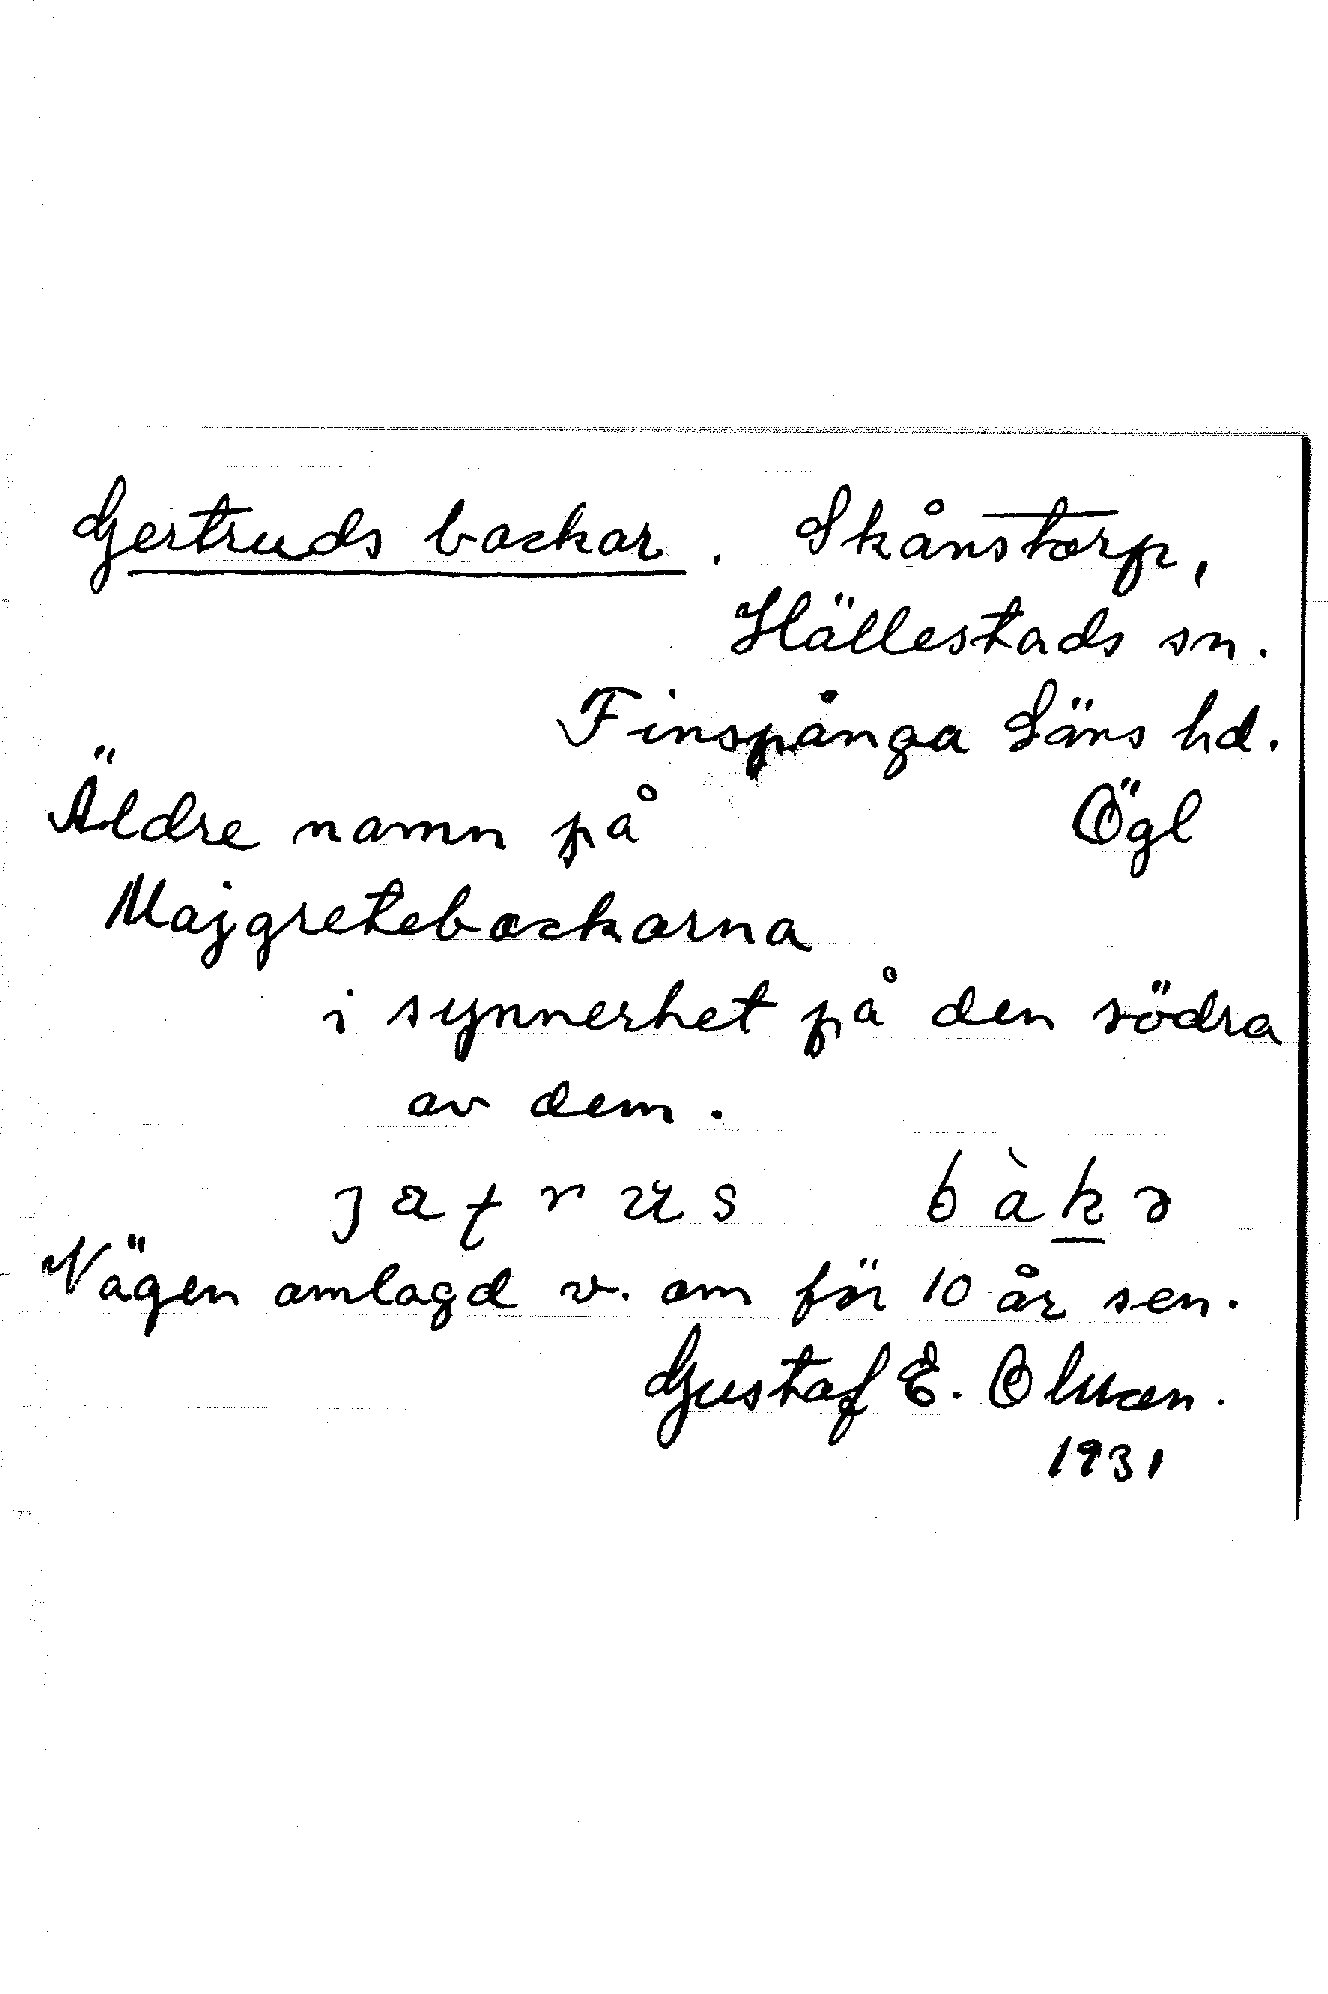 Gertruds backar. Skånstorp,
Hällestads sn.
Finspånga Läns hd.
Äldre namn på Ögl
Majgretebackarna
i synnerhet på den södra
av dem.
Vägen omlagd v. om för 10 år sen.
Gustaf E. Olsson.
1931